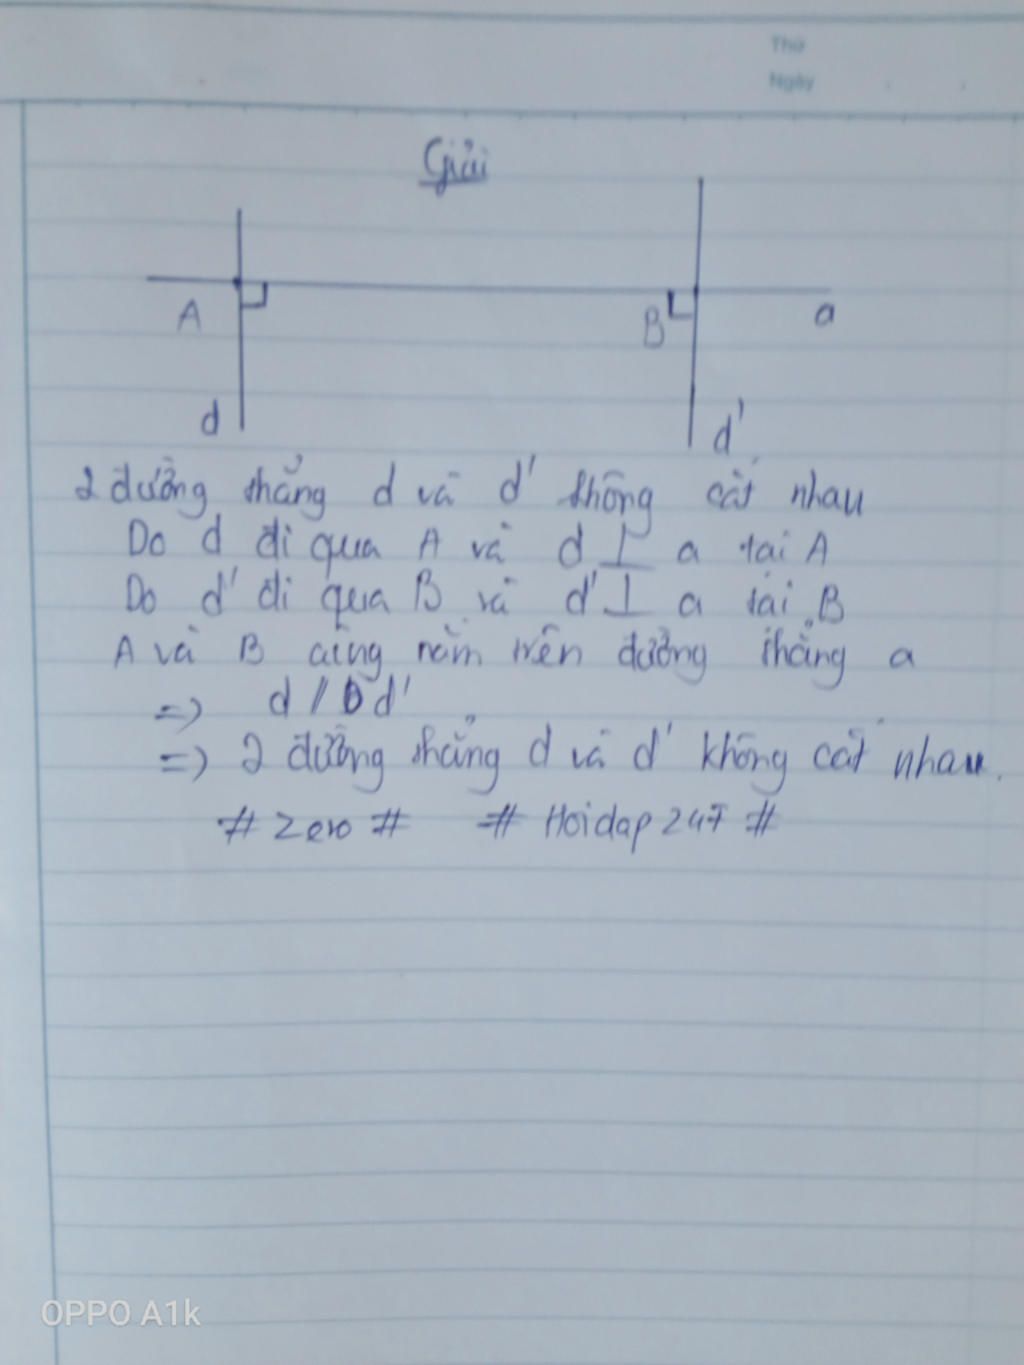 Thứ
Ngày
Giải
A
B
a
d
d'
2 đường thẳng d và d' không cắt nhau
Do d đi qua A và d ⊥ a tại A
Do d' đi qua B và d' ⊥ a tại B
A và B cùng nằm trên đường thẳng a
=> d // d'
=> 2 đường thẳng d và d' không cắt nhau.
# Zero # # Hoidap 247 #
OPPO A1k